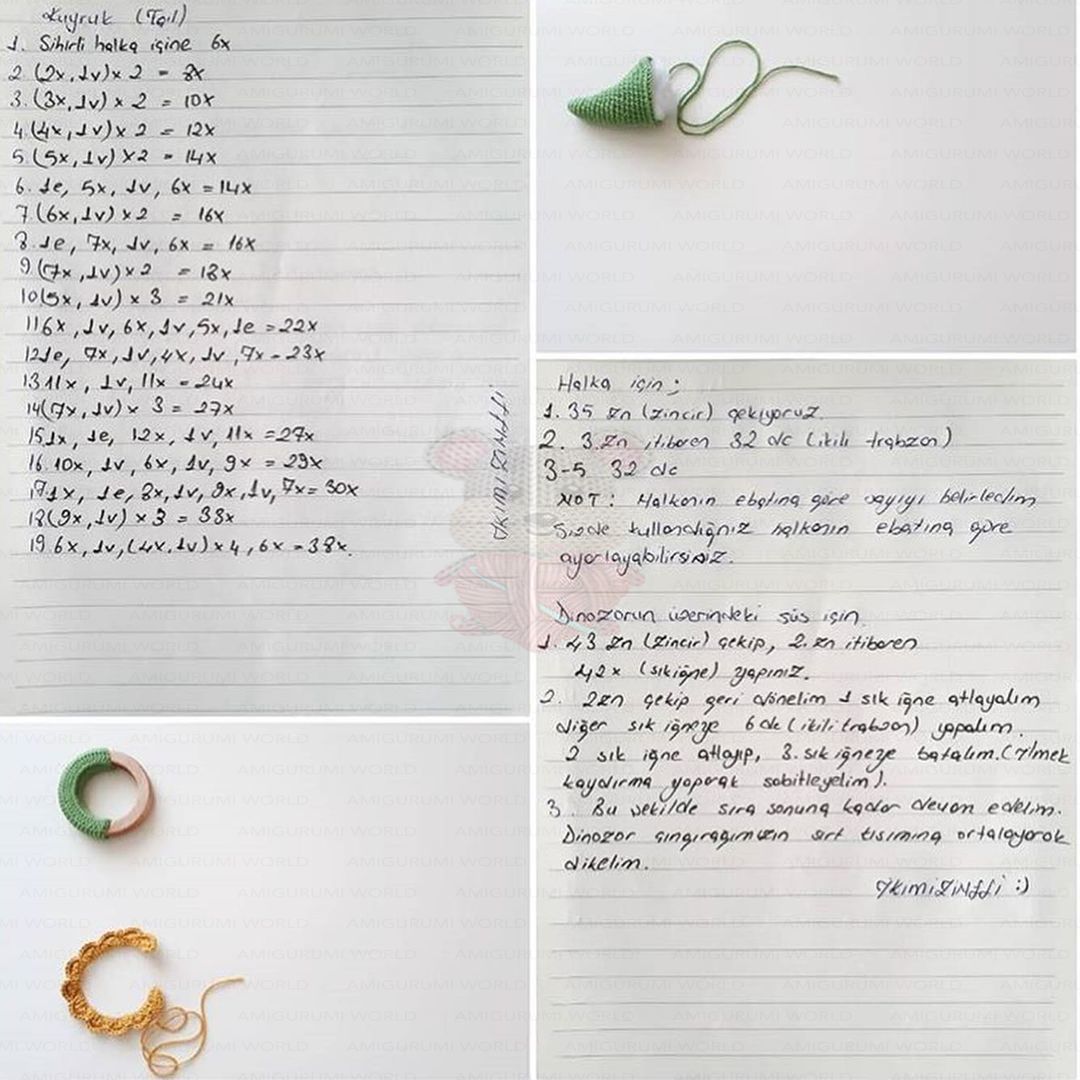 Kuyruk (Tail)
1. Sihirli halka içine 6x
2. (2x, 1v) x 2 = 8x
3. (3x, 1v) x 2 = 10x
4. (4x, 1v) x 2 = 12x
5. (5x, 1v) x 2 = 14x
6. 1e, 5x, 1v, 6x = 14x
7. (6x, 1v) x 2 = 16x
8. 1e, 7x, 1v, 6x = 16x
9. (7x, 1v) x 2 = 18x
10 (5x, 1v) x 3 = 21x
11 6x, 1v, 6x, 1v, 5x, 1e = 22x
12 1e, 7x, 1v, 4x, 1v, 7x = 23x
13 11x, 1v, 11x = 24x
14 (7x, 1v) x 3 = 27x
15 1x, 1e, 12x, 1v, 11x = 27x
16. 10x, 1v, 6x, 1v, 9x = 29x
17 1x, 1e, 8x, 1v, 9x, 1v, 7x = 30x
18 (9x, 1v) x 3 = 33x
19. 6x, 1v, (4x, 1v) x 4, 6x = 38x.
Halka için :
1. 35 zn (zincir) çekiyoruz
2. 3. zn itibaren 32 dc (ikili trabzan)
3-5 32 dc
NOT : Halkanın ebatına göre sayıyı belirledim
Sizde kullandığınız halkanın ebatına göre
ayarlayabilirsiniz.
Dinozorun üzerindeki süs için
1. 43 zn (zincir) çekip, 2. zn itibaren
42x (sık iğne) yapınız.
2. 2zn çekip geri dönelim 1 sık iğne atlayalım
diğer sık iğneye 6 dc (ikili trabzan) yapalım.
2 sık iğne atlayıp, 3. sık iğneye batalım. (ilmek
kaydırma yaparak sabitleyelim).
3. Bu şekilde sıra sonuna kadar devam edelim.
Dinozor çıngırağımızın sırt kısımına ortalayarak
dikelim.
:)
AMIGURUMI WORLD